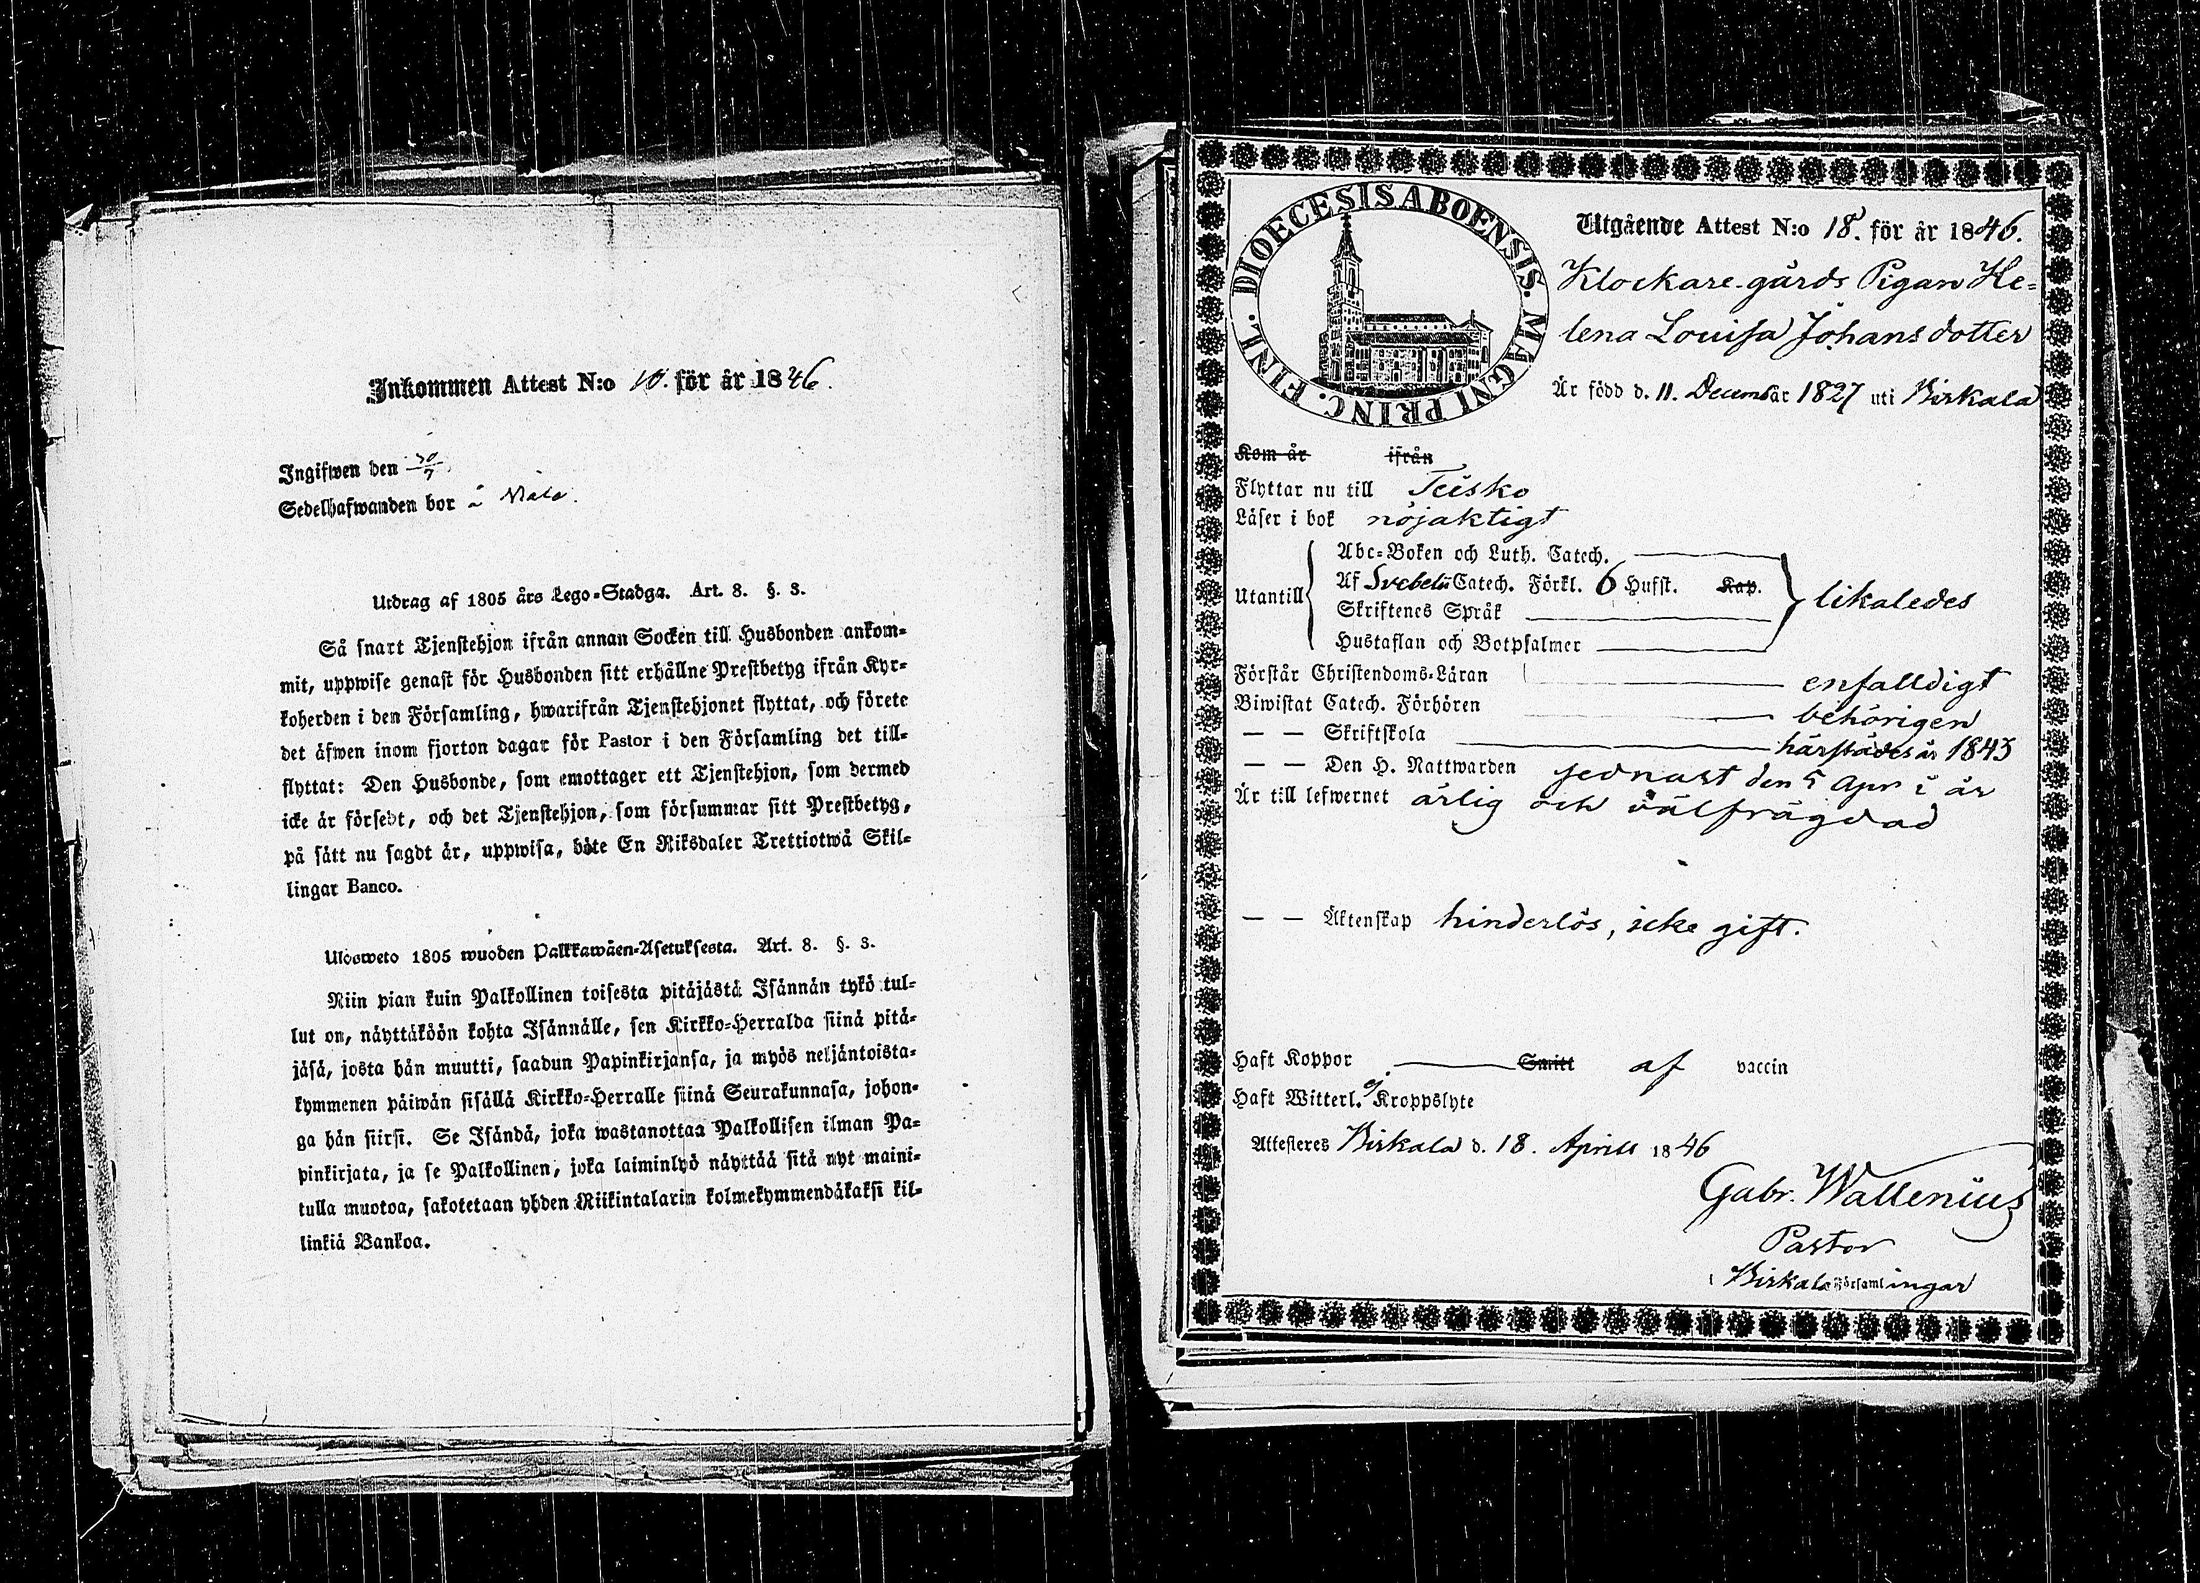 Inkommen Attest N:o 10. för år 1846.
Ingifwen den 30/7
Sedelhafwanden bor i
Utdrag af 1805 års Lego-Stadga. Art. 8. §. 3.
Så snart Tjenstehjon ifrån annan Socken till Husbonden ankom-
mit, uppwise genast för Husbonden sitt erhållne Prestbetyg ifrån Kyr-
koherden i den Församling, hwarifrån Tjenstehjonet flyttat, och förete
det äfwen inom fjorton dagar för Pastor i den Församling det till-
flyttat: Den Husbonde, som emottager ett Tjenstehjon, som dermed
icke är försedt, och det Tjenstehjon, som försummar sitt Prestbetyg,
på sätt nu sagdt är, uppwisa, böte En Riksdaler Trettiotwå Skil-
lingar Banco.
Ulosweto 1805 wuoden Palkkawäen-Asetuksesta. Art. 8. §. 3.
Niin pian kuin Palkollinen toisesta pitäjästä Isännän tykö tul-
lut on, näyttäköön kohta Isännälle, sen Kirkko-Herralda siinä pitä-
jäsä, josta hän muutti, saadun Papinkirjansa, ja myös neljäntoista-
kymmenen päiwän sisällä Kirkko-Herralle siinä Seurakunnasa, johon-
ga hän siirsi. Se Isändä, joka wastanottaa Palkollisen ilman Pa-
pinkirjata, ja se Palkollinen, joka laiminlyö näyttää sitä nyt maini-
tulla muotoa, sakotetaan yhden Riikintalarin kolmekymmendäkaksi kil-
linkiä Bankoa.
DIOECESIS ABOENSIS. MAGNI PRINC. FINL.
Utgående Attest N:o 18. för år 1846.
Klockare-gårds Pigan He-
lena Louisa Johansdotter
Är född d. 11. Decemb är 1827 uti Birkala
Kom år ifrån
Flyttar nu till Teisko
Läser i bok nöjaktigt
Utantill
Abc-Boken och Luth. Catech.
Af Svebelii Catech. Förkl. 6 Hufst. Kap.
Skriftenes Språk
Hustaflan och Botpsalmer
likaledes
Förstår Christendoms-Läran enfalldigt
Biwistat Catech. Förhören behörigen
— — Skriftskola härstädes år 1843
— — Den H. Nattwarden sednast den 5 Apr i år
Är till lefwernet ärlig och välfrägdad
— — Äktenskap hinderlös, icke gift.
Haft Koppor Smitt af vaccin
Haft Witterl. ej Kroppslyte
Attesteres Birkala d. 18. Aprill 1846
Gabr. Wallenius
Pastor
i Birkala Församlingar